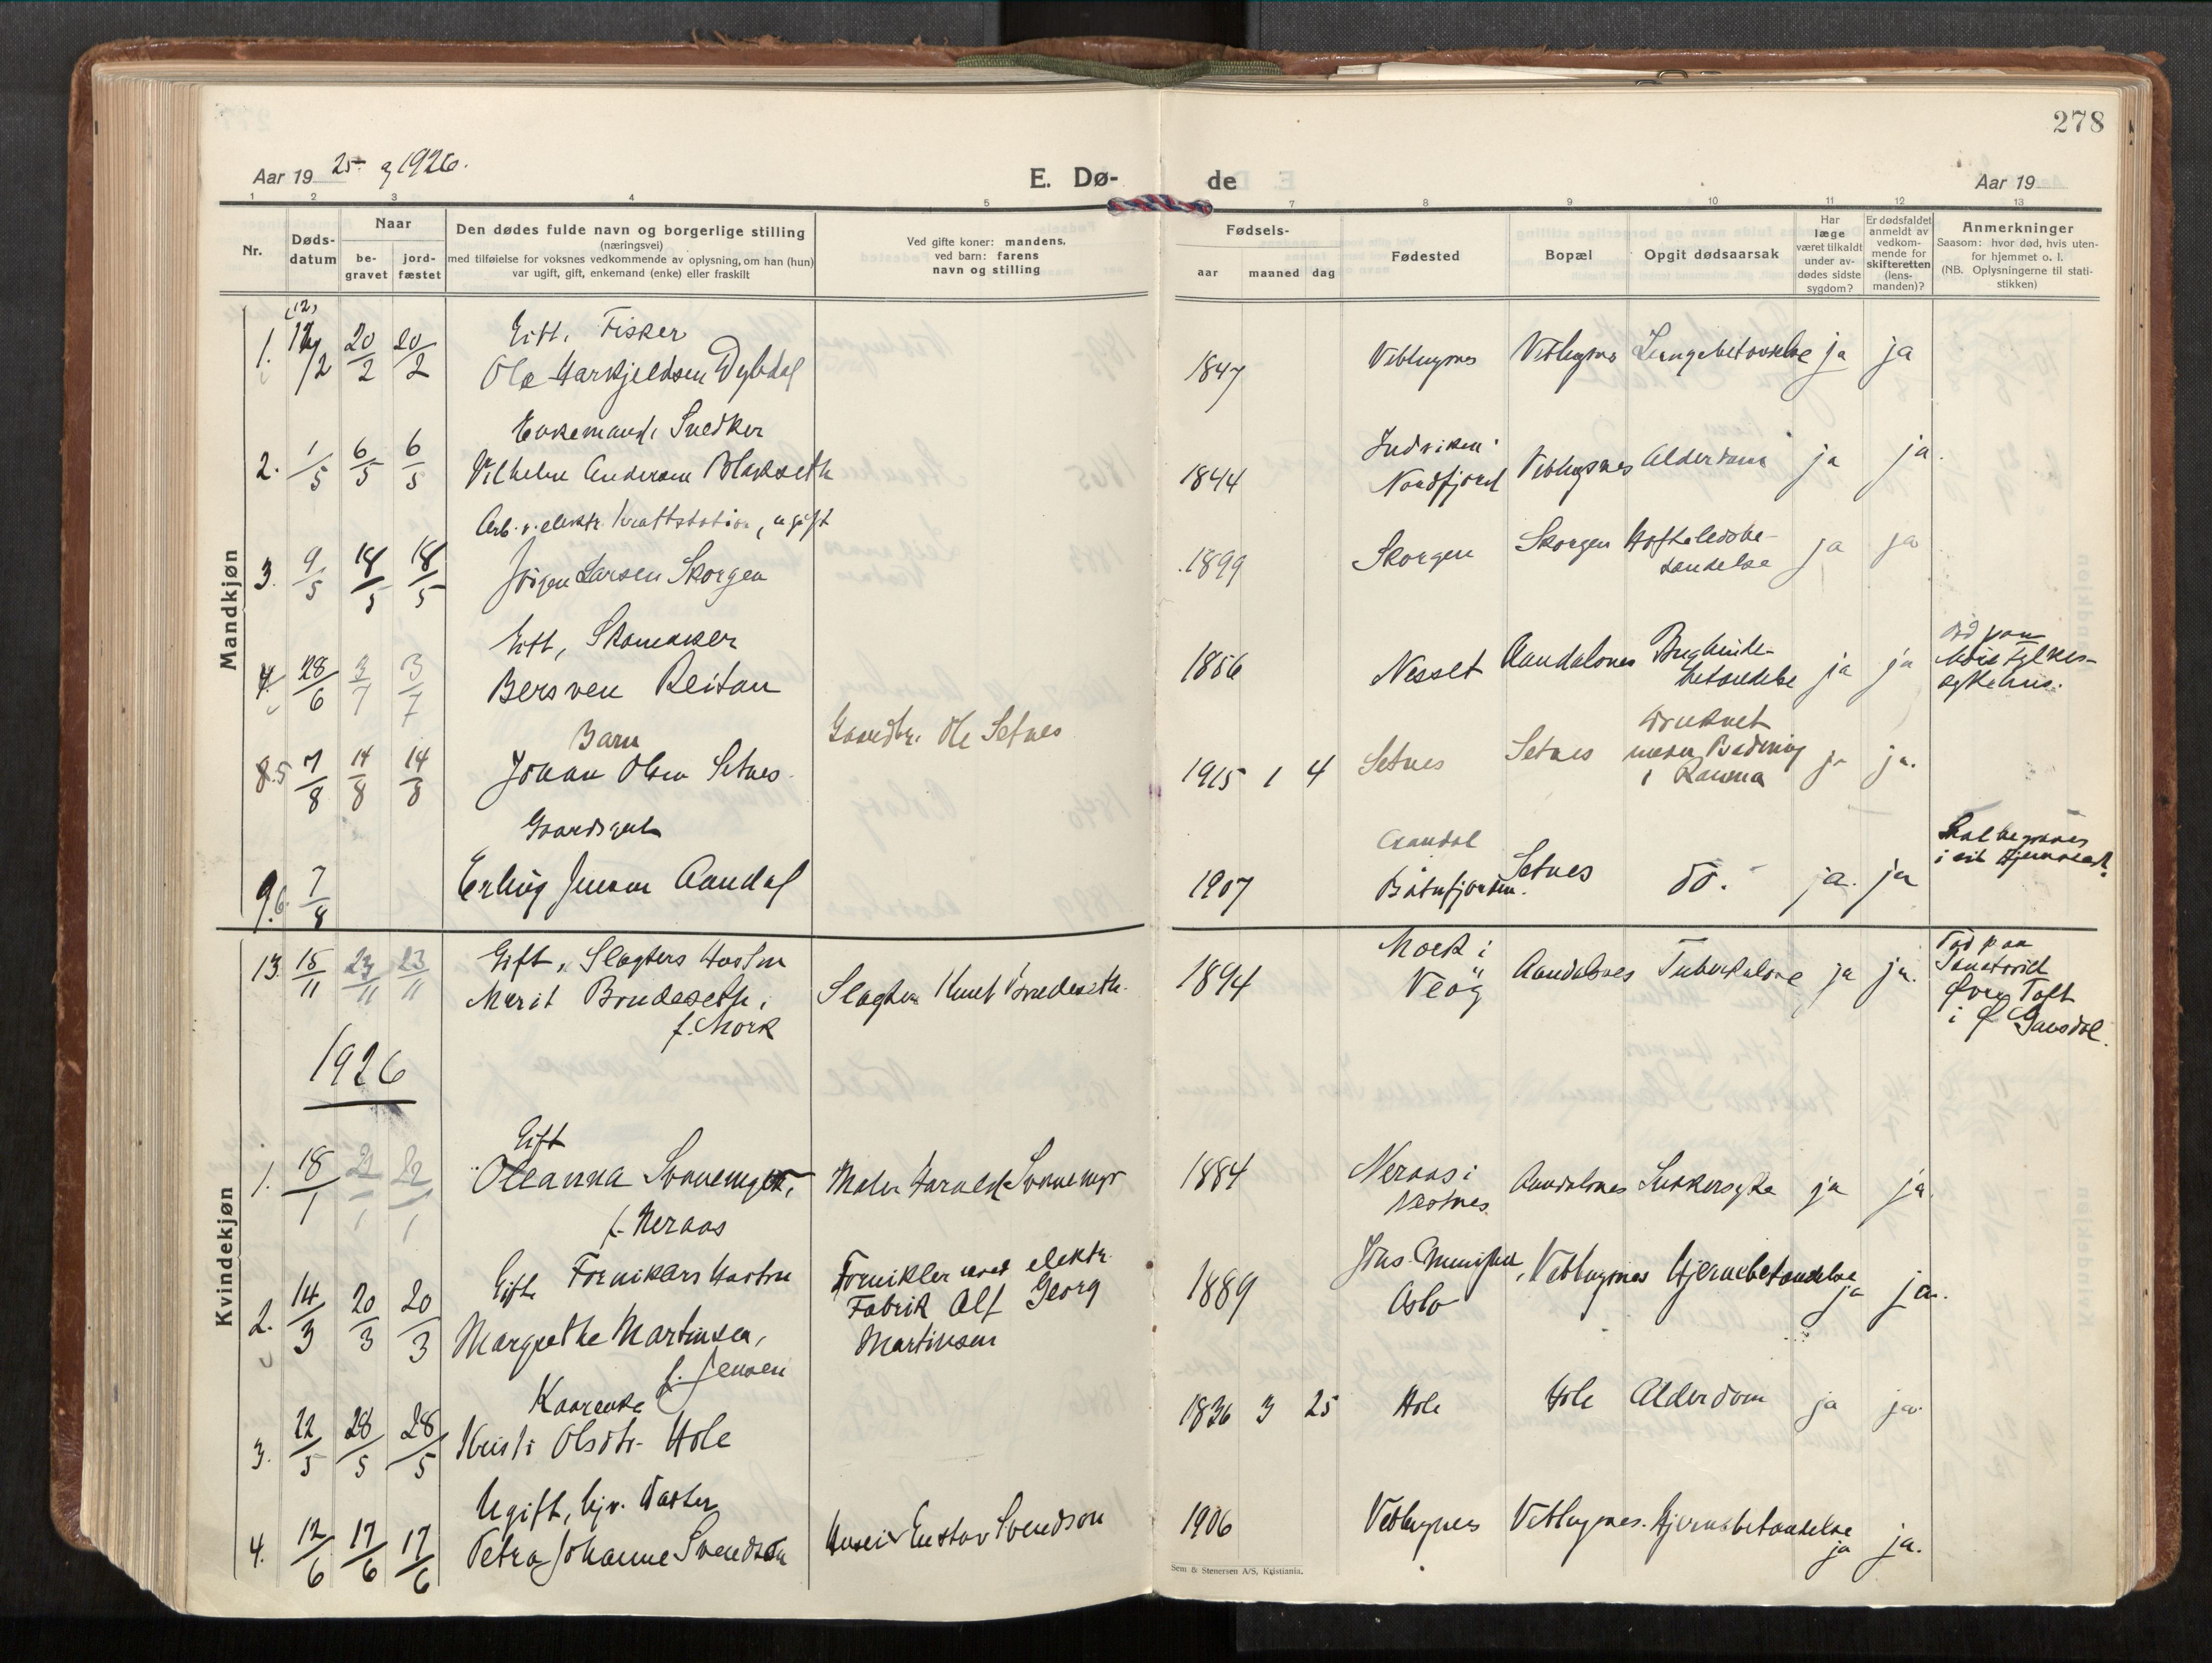 278
Aar 19 25 og 1926.
E. Dø-
de
Aar 19
1 2 3 4 5 7 8 9 10 11 12 13
Nr.
Døds-
datum
Naar
be-
gravet
jord-
fæstet
Den dødes fulde navn og borgerlige stilling
(næringsvei)
med tilføielse for voksnes vedkommende av oplysning, om han (hun)
var ugift, gift, enkemand (enke) eller fraskilt
Ved gifte koner: mandens,
ved barn: farens
navn og stilling
Fødsels-
aar maaned dag
Fødested
Bopæl
Opgit dødsaarsak
Har
læge
været tilkaldt
under av-
dødes sidste
sygdom?
Er dødsfaldet
anmeldt av
vedkom-
mende for
skifteretten
(lens-
manden)?
Anmerkninger
Saasom: hvor død, hvis uten-
for hjemmet o. l.
(NB. Oplysningerne til stati-
stikken)
Mandkjøn
Gift, Fisker
1. 12/2 20/2 20/2 Ola Dybdal 1847 Veblugnes Veblugnes Lungebetændelse ja ja
Enkemand, Snedker
2. 1/5 6/5 6/5 Vilhelm Andersen 1844 Indviken i Nordfjord Veblugsnes Alderdom ja ja.
Arb. v. elektr. kraftstation, ugift
3. 9/5 18/5 18/5 Jörgen Larsen Skorgen 1899 Skorgen Skorgen Hofteledsbe-
tændelse ja ja
Gift, Skomaker
4. 28/6 3/7 3/7 Bersven Reitan 1856 Nesset Aandalsnes Bughinde-
betændelse ja ja
Död paa
Möre Fylkes-
sykehus.
Barn
8.5 7/8 14/8 14/8 Johan Olsen Setnes Gaardbr. Ole Setnes 1915 1 4 Setnes Setnes Druknet
under Badning
i Rauma ja ja.
Gaardsgut
9.6. 7/8 Erling Jensen Aandal 1907 Aandal
Båtnfjorden. Setnes do. ja. ja
Skal begraves
i sit Hjemsted.
Kvindekjøn
Gift, Slagters Hustru
13 15/11 23/11 23/11 Marit Brudeseth,
f. Mork Slagter Knut Brudeseth. 1894 Mork i
Veøy Aandalsnes Tuberkulose ja ja.
Død paa
Sanatoriet
Øvre Toft
i Ø Gausdal.
1926
Gift
1. 18/1 22/1 22/1 Oleanna Svanemyr,
f. Neraas Maler Harald Svanemyr 1884 Neraas i
Vestnes. Aandalsnes Sukkersyke ja ja.
Gift Forniklers Hustru
2. 14/3 20/3 20/3 Margrethe Martinsen,
f. Jensen
Fornikler ved elektr.
Fabrik Alf Georg
Martinsen 1889 Oslo Veblugsnes Hjernebetændelse ja ja.
Kaarenke
3. 22/5 28/5 28/5 Kristi Olsdtr. Hole 1836 3 25 Hole Hole Alderdom ja ja.
Ugift, hjv. Datter
4. 12/6 17/6 17/6 Petra Johanne Svendson Gustav Svendson 1906 Veblugnes Veblugnes. Hjernebetændelse ja ja.
Sem & Stenersen A/S, Kristiania.